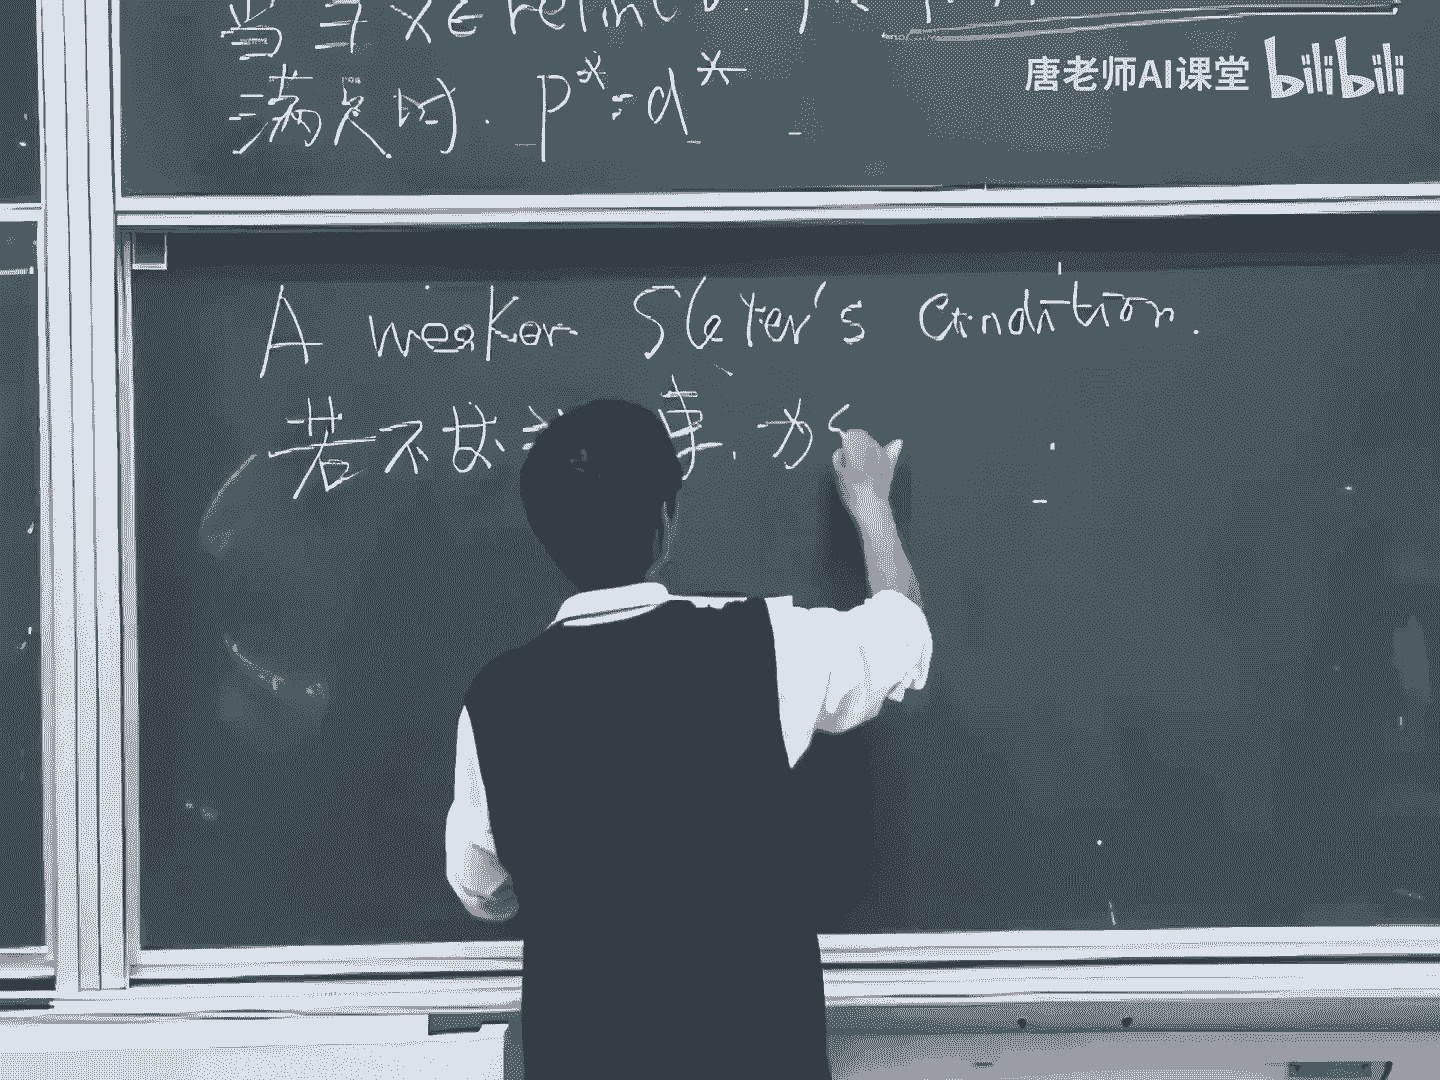 当 ∃ x ∈ relint
满足时. p* = d*
唐老师AI课堂 bilibili
A weaker Slater's Condition.
若不等 束. 为